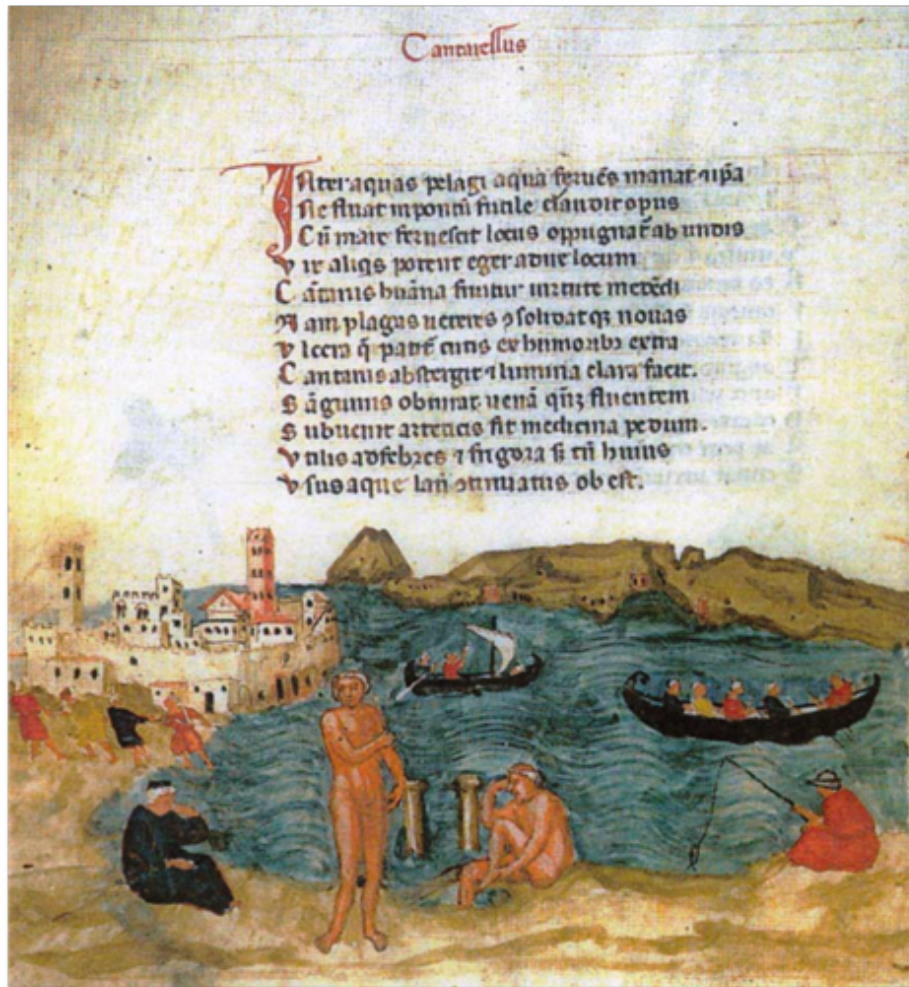 Cantarellus
INter aquas pelagi aqua feruēs manat ⁊ ip̄a
Ne fluat in pontū futile claudit opus
Cū mare feruescit locus oppugnat̄ ab undis
Vix aliq̄s potent eger adire locum
Cātarus huāna fruitur uirtute medēdi
Nam plagas ueteres ꝯsolidat qꝫ nouas
Vlcera q̄ patēt cutis ex humoribꝫ extra
Cantarus abstergit ⁊ lumina clara facit.
Sāguinis obturat uenā fluentem
Subuenit arteticis fit medicina pedum.
Vtilis ad febres ⁊ frigora si tn̄ huius
Vsus aque ꝯtinuatus obest.